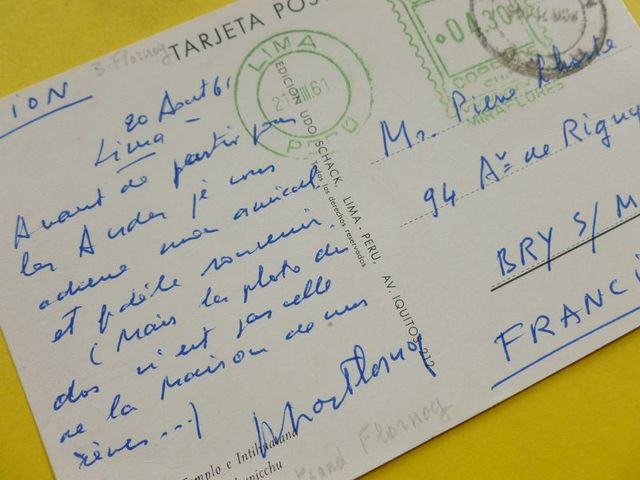 ION
B. Flornoy
TARJETA POS
LIMA
21 VIII 61
PERU
0430
MIRAFLORES
EDICION UDO SCHACK, LIMA - PERU, AV. IQUITOS 212
Todos los derechos reservados
20 Août 61
Lima -
Avant de partir pour
les Andes je vous
adresse mon amical
et fidèle souvenir.
(Mais la photo du
dos n'est pas celle
de la maison de mes
rêves...)
Flornoy
Mr. Pierre Lhoste
94 Ave de Rigny
BRY S/M
FRANC
Templo e Intihuatana
Flornoy